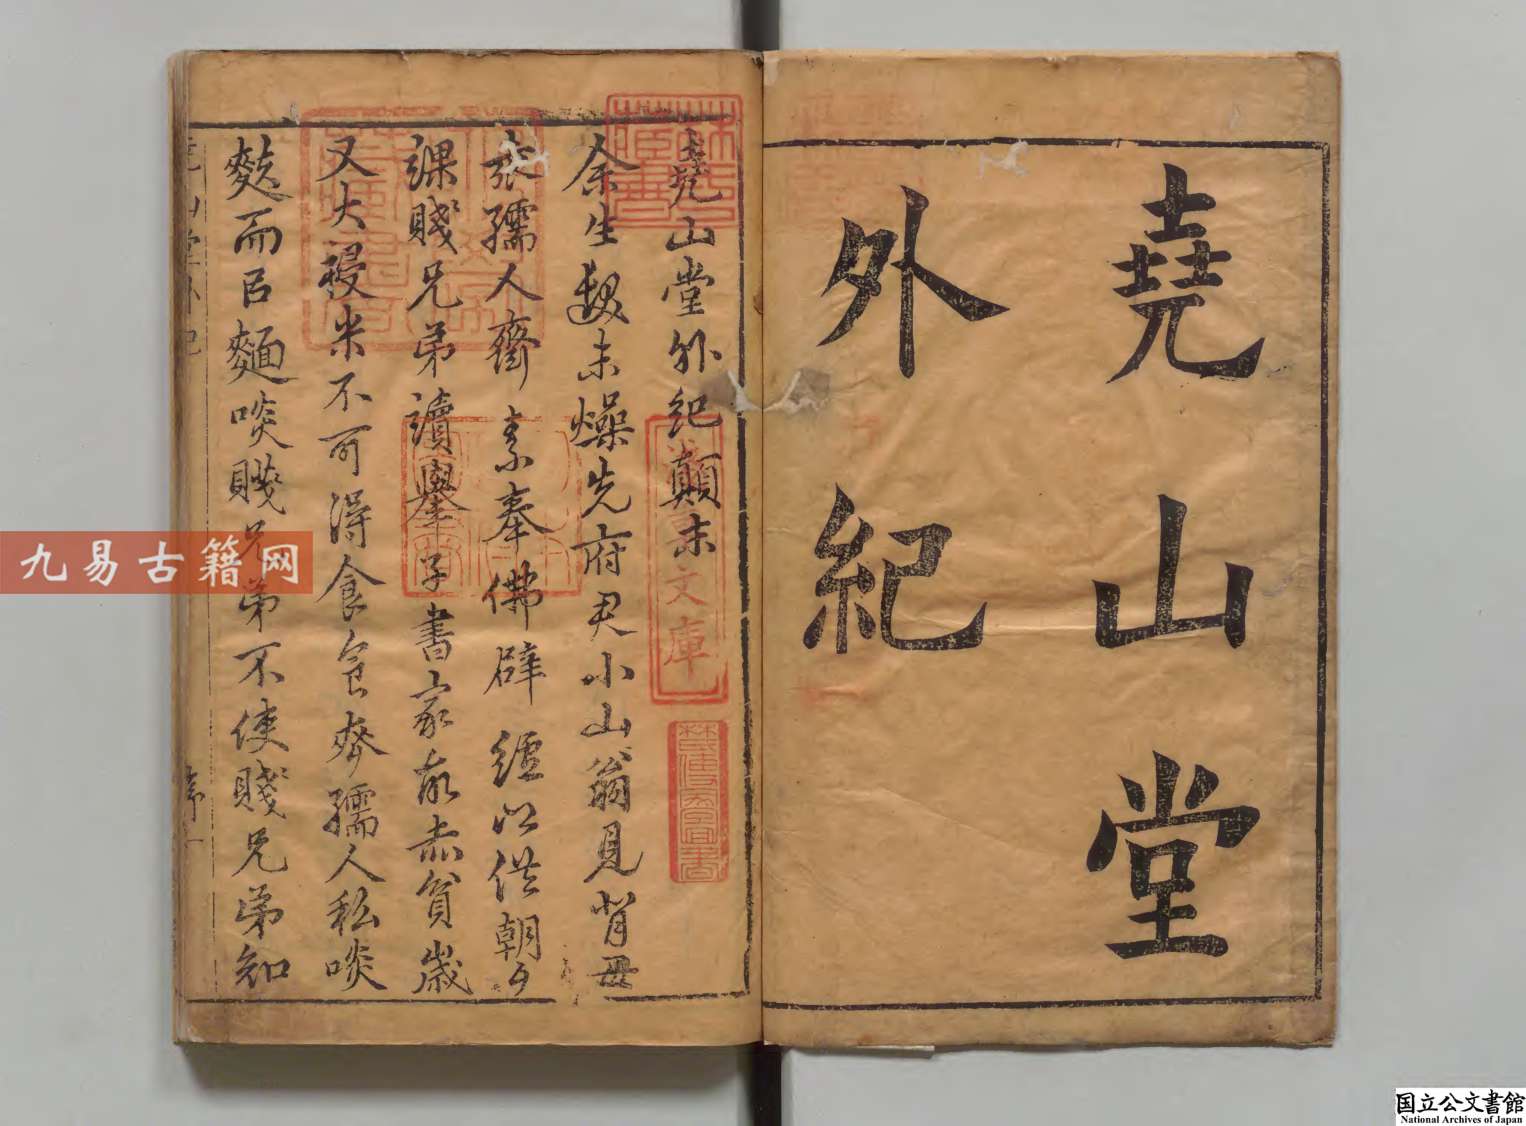 堯山堂
外紀
堯山堂外紀顛末
余生髮未燥先府君小山翁見背母
張孺人齋素奉佛辟纑以供朝夕
課賤兄弟讀舉子書家故赤貧歲
又大祲米不可得食食麥孺人私啖
麩而㠯麵啖賤兄弟不使賤兄弟知
堯山堂外紀
序
一
文庫
九易古籍网
国立公文書館
National Archives of Japan